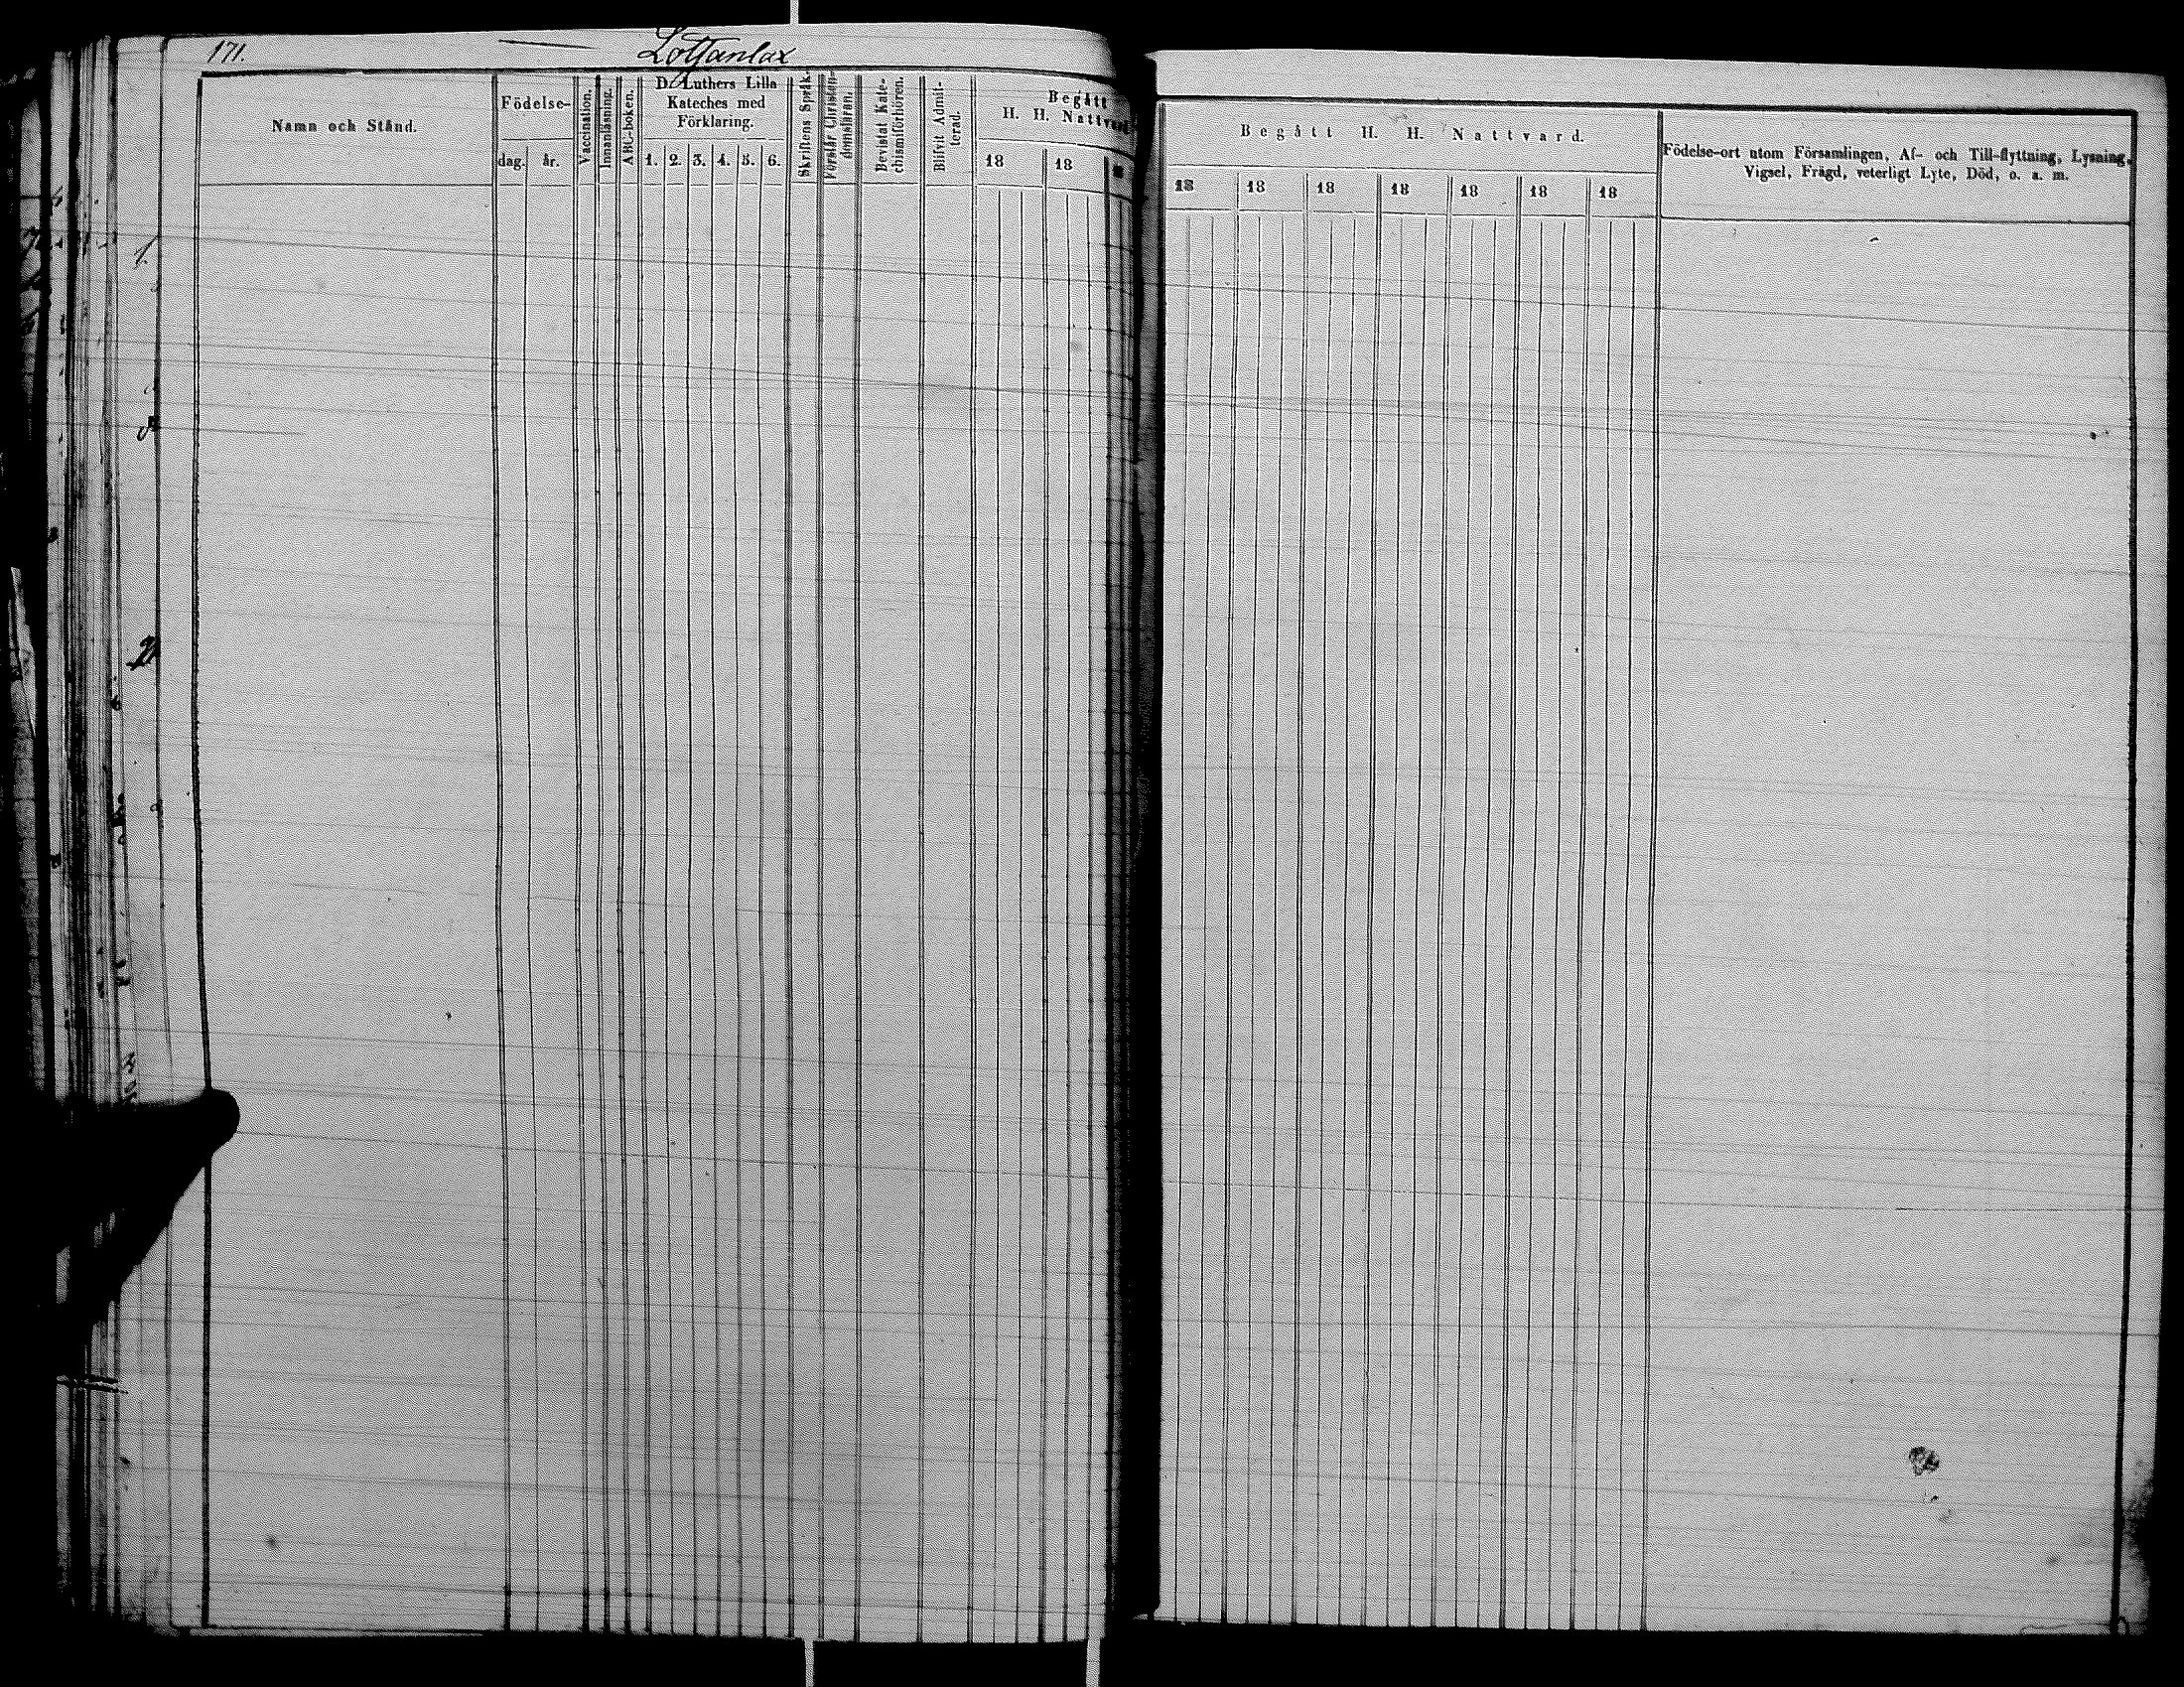 171.
Lottanlax
Namn och Stånd.
Födelse-
dag. år.
Vaccination.
Innanläsning.
ABC-boken.
D. Luthers Lilla
Kateches med
Förklaring.
1. 2. 3. 4. 5. 6.
Skriftens Språk.
Förstår Christen-
domsläran.
Bevistat Kate-
chismiförhören.
Blifvit Admit-
terad.
Begått
H. H. Nattvard
18 18
Begått H. H. Nattvard.
18 18 18 18 18 18 18
Födelse-ort utom Församlingen, Af- och Till-flyttning, Lysning,
Vigsel, Frägd, veterligt Lyte, Död, o. a. m.